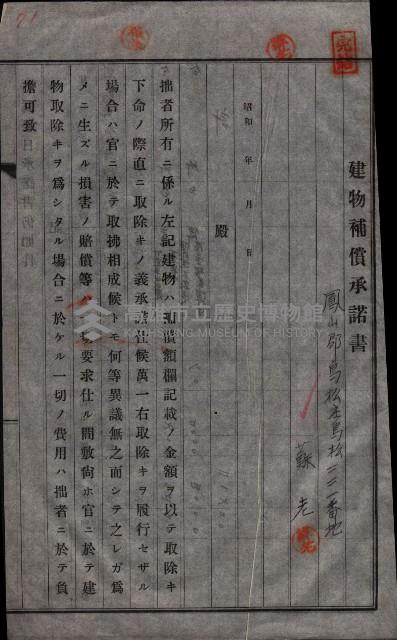 建物補償承諾書
鳳山郡鳥松庄鳥松三三二番地
蘇老
昭和 年 月 日
殿
拙者所有ニ係ル左記建物ハ補償額欄記載ノ金額ヲ以テ取除キ
下命ノ際直ニ取除キノ義承諾仕候萬一右取除キヲ履行セザル
場合ハ官ニ於テ取拂相成候トモ何等異議無之而シテ之レガ爲
メニ生ズル損害ノ賠償等ハ一切要求仕ル間敷尙ホ官ニ於テ建
物取除キヲ爲シタル場合ニ於ケル一切ノ費用ハ拙者ニ於テ負
擔可致
高雄市立歷史博物館
KAOHSIUNG MUSEUM OF HISTORY
71